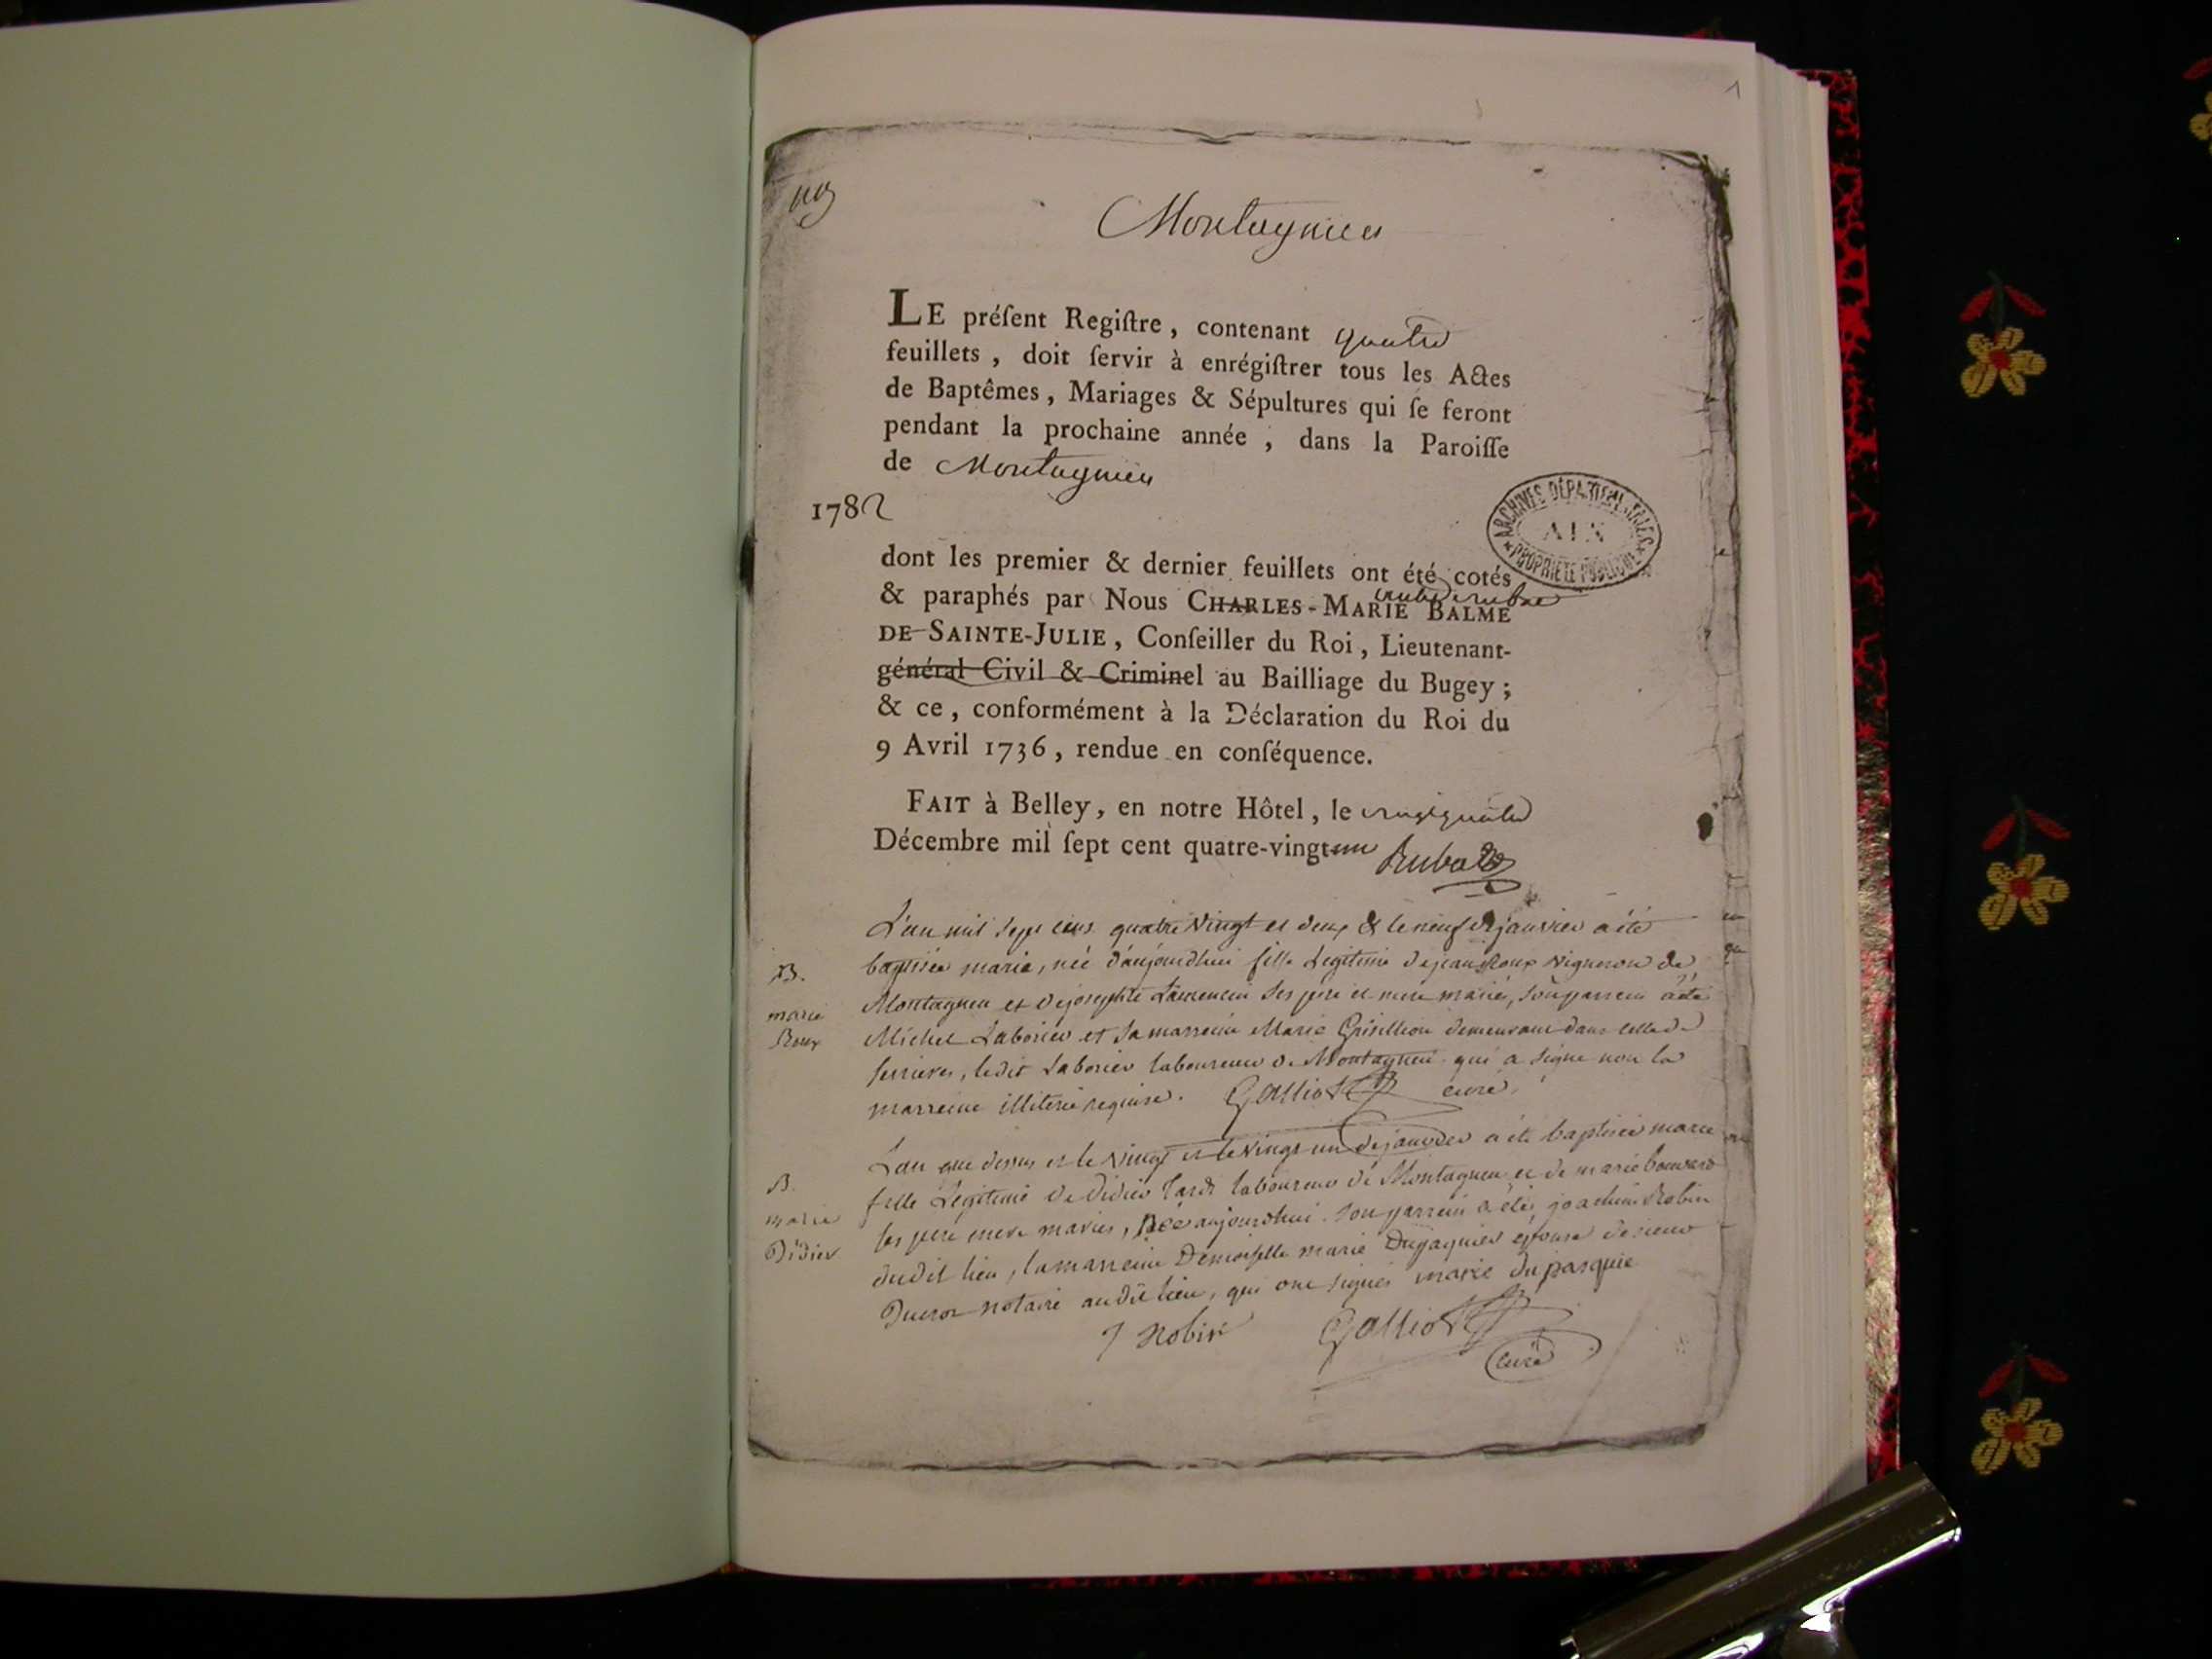 1
Montagnieu
LE préſent Regiſtre, contenant quatre
feuillets, doit ſervir à enrégiſtrer tous les Actes
de Baptêmes, Mariages & Sépultures qui ſe feront
pendant la prochaine année, dans la Paroiſſe
de Montagnieu
1782
ARCHIVES DÉPARTEMENTALES
AIN
PROPRIÉTÉ PUBLIQUE
dont les premier & dernier feuillets ont été cotés
& paraphés par Nous CHARLES-MARIE BALME
DE SAINTE-JULIE, Conſeiller du Roi, Lieutenant-
général Civil & Criminel au Bailliage du Bugey;
& ce, conformément à la Déclaration du Roi du
9 Avril 1736, rendue en conſéquence.
FAIT à Belley, en notre Hôtel, le vingtquatre
Décembre mil ſept cent quatre-vingt un
L'an mil sept cens quatre vingt et deux & le neuf de janvier a été
B. baptisée marie, née d'aujourdhui fille Legitime de jean Roux vigneron de
marie Montagneu et de josephte ses pere et mere mariés, son parrein a été
Roux Michel Laborier et sa marreine Marie demeurant dans celle de
serrieres, ledit Laborier laboureur de Montagneu qui a signé non la
marreine illiterée requise. Galliot curé
L'an que dessus et le vingt et le vingt un de janvier a été baptisée marie
B. fille Legitime de Didier Tardi laboureur de Montagneu et de marie bouvard
marie ses pere mere mariés, née aujourdhui. son parrein a été, joachim Robin
Didier dudit lieu, la marreine Demoiselle marie Dupaquier épouse de sieur
Ducros notaire audit lieu, qui ont signés marie du pasquie
J Robin Galliot
curé